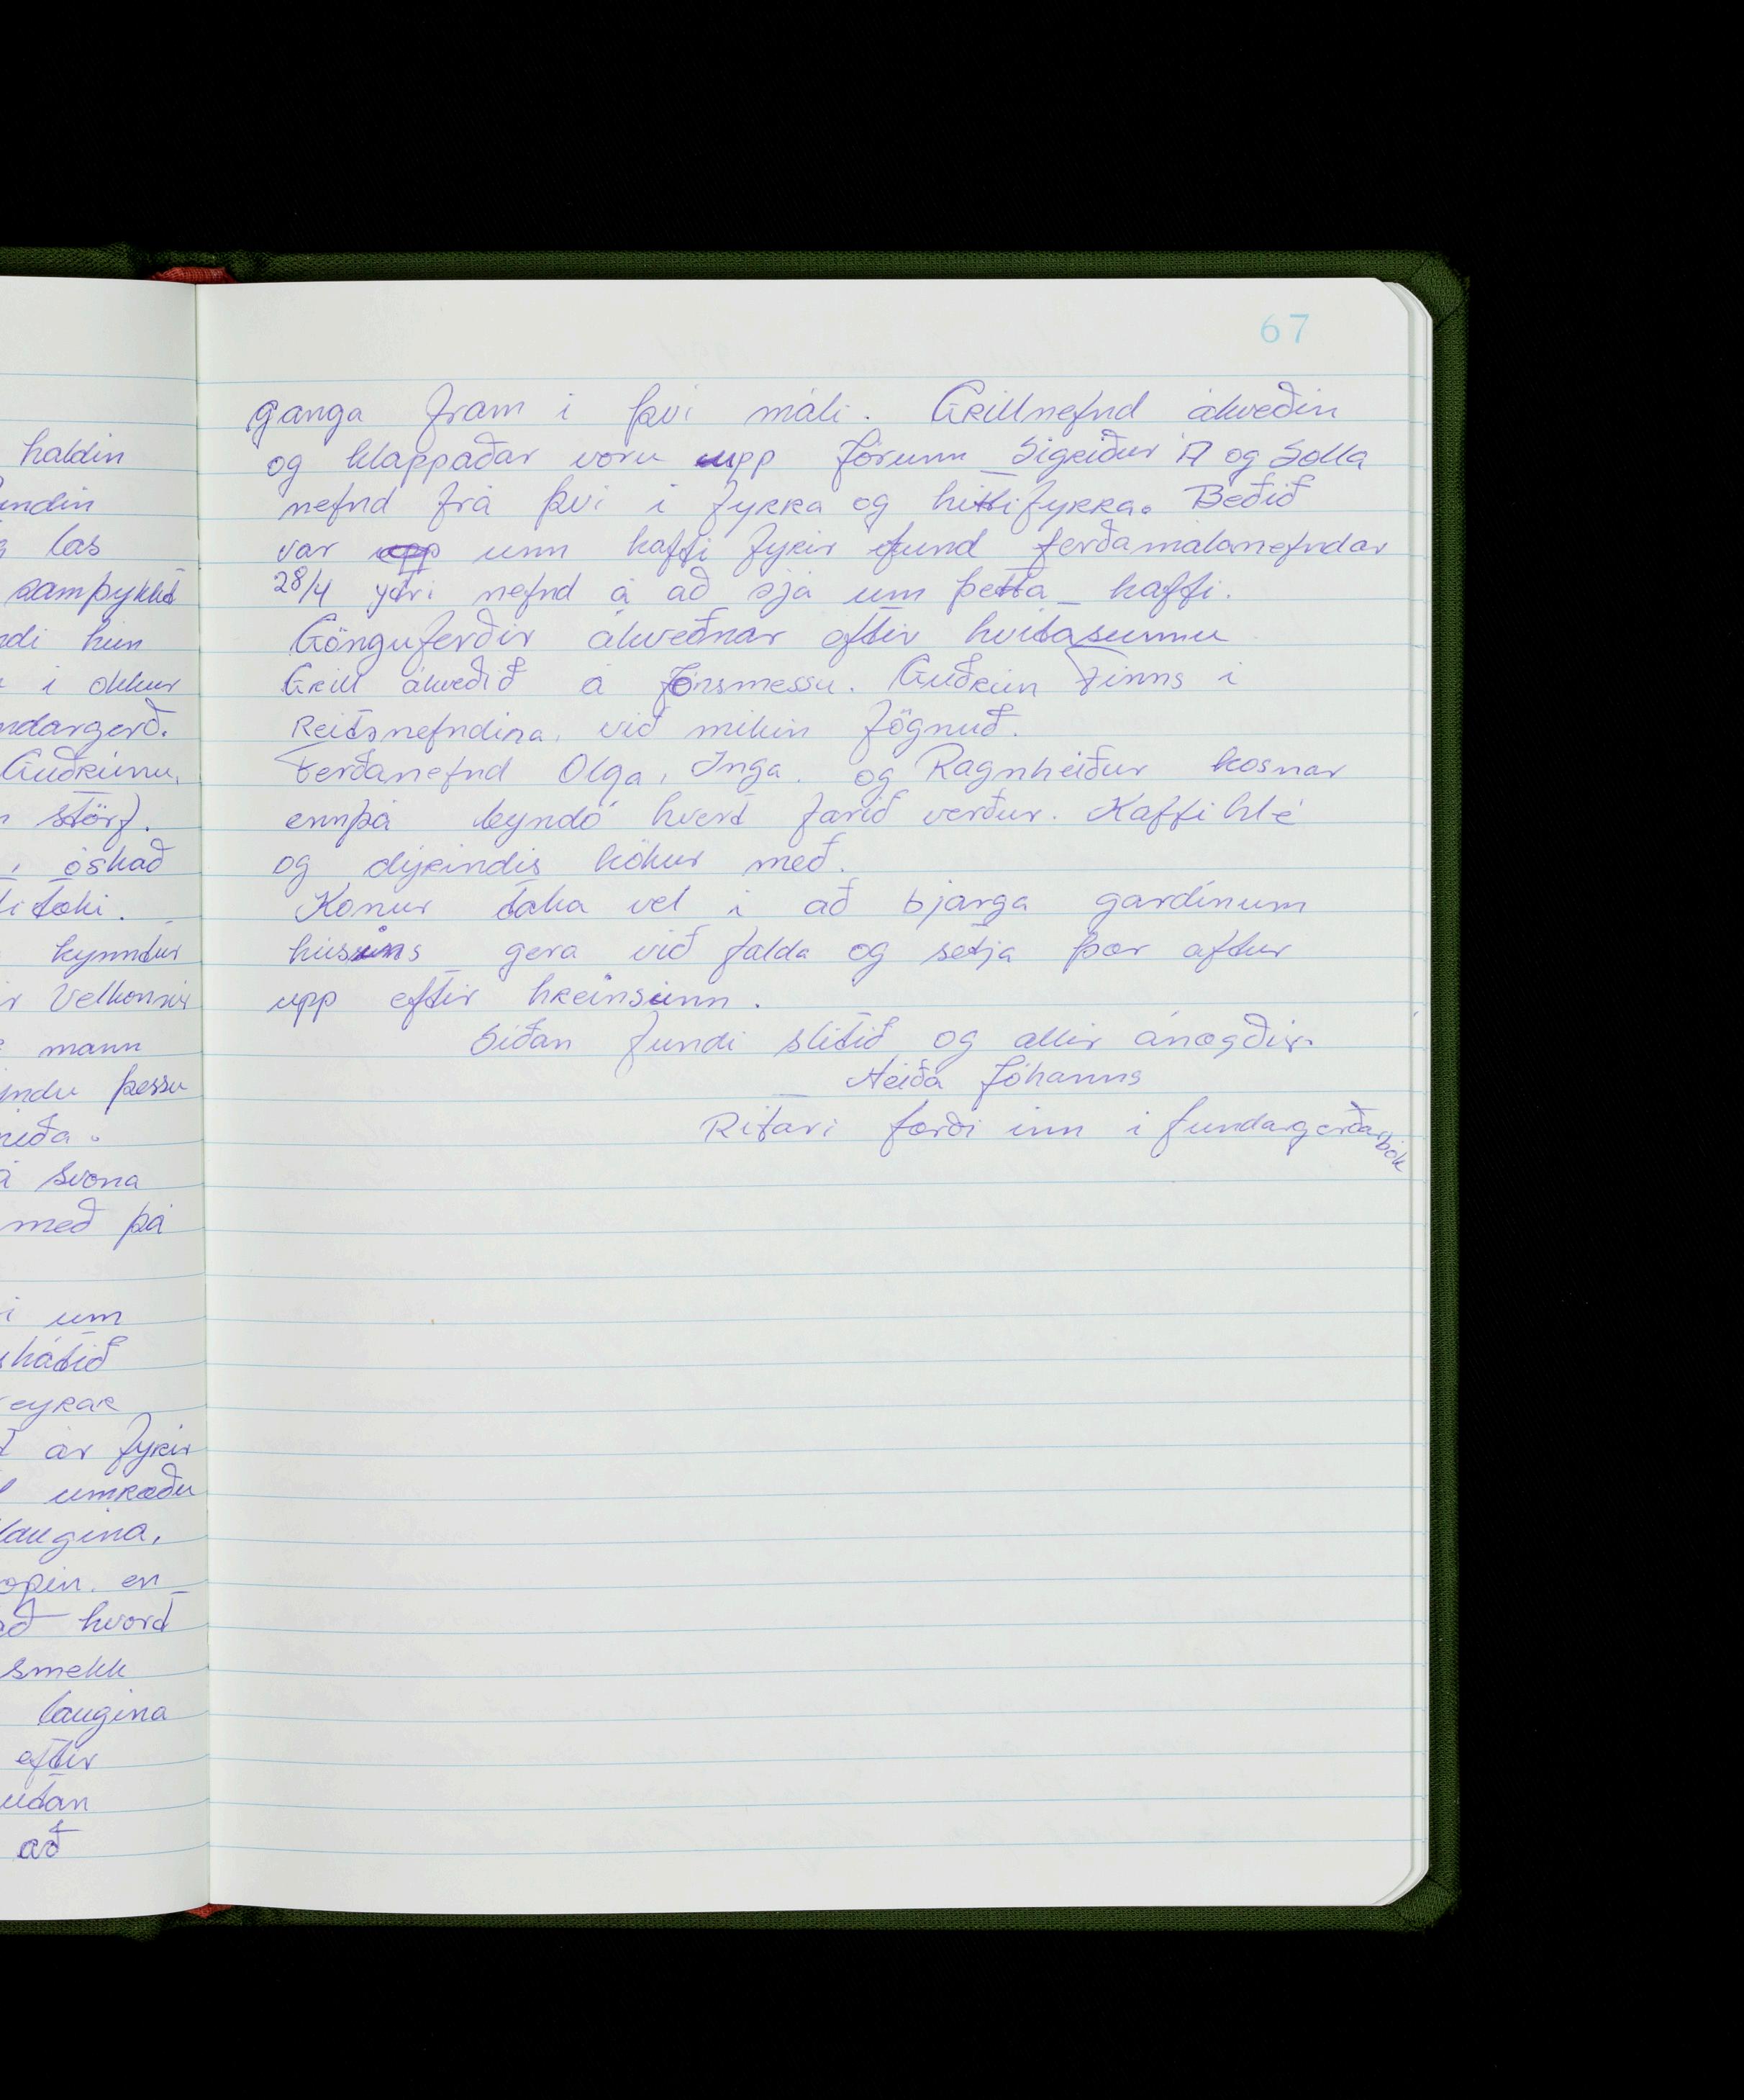 67
ganga fram i því máli. Grillnefnd ákveðin
og klappaðar voru upp Jórunn Sigríður A og Solla
nefnd frá því i fyrra og hittifyrra. Beðið
var unn kaffi fyrir fund ferðamálanefndar
28/4 ytri nefnd á að sjá um þetta kaffi.
Gönguferðir ákveðnar eftir hvitasunnu
Grill ákveðið á Jónsmessu. Guðrún Finns i
Reitsnefndina, við mikin fögnuð.
Ferðanefnd Olga, Inga. og Ragnheiður kosnar
ennþá leyndó hvert farið verður. Kaffihlé
og dýrindis kökur með.
Konur taka vel i að bjarga gardínum
hússins gera við falda og setja þær aftur
upp eftir hreinsunn.
Siðan fundi slitið og allir ánægðir.
Heiða Jóhanns
Ritari færði inn i fundargerðarbók
haldin
las
samþykkt
hún
i okkur
Guðrúnu,
störf.
óskað
kynntur
Velkomnir
mann
þessu
svona
með þá
um
ár fyrir
umræðu
laugina,
opin. en
hvort
smekk
laugina
eftir
utan
að